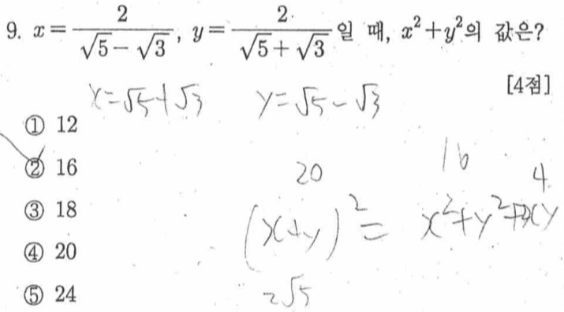 9. x = 2/(√5 − √3), y = 2/(√5 + √3) 일 때, x² + y²의 값은?
[4점]
x = √5 + √3 y = √5 − √3
① 12
② 16
③ 18
④ 20
⑤ 24
20 16 4
(x+y)² = x² + y² + 2xy
2√5